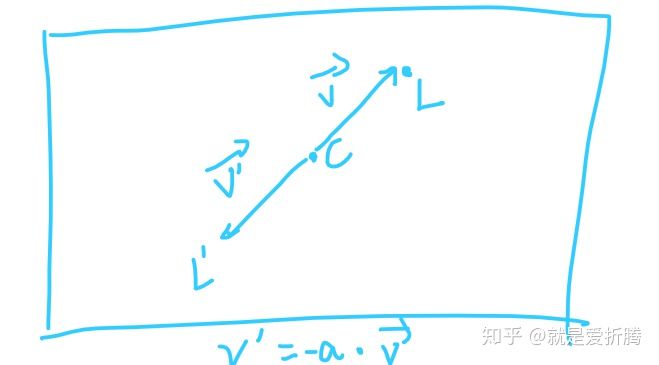 v⃗
L
C
v⃗'
L'
v' = -a · v⃗
知乎 @就是爱折腾